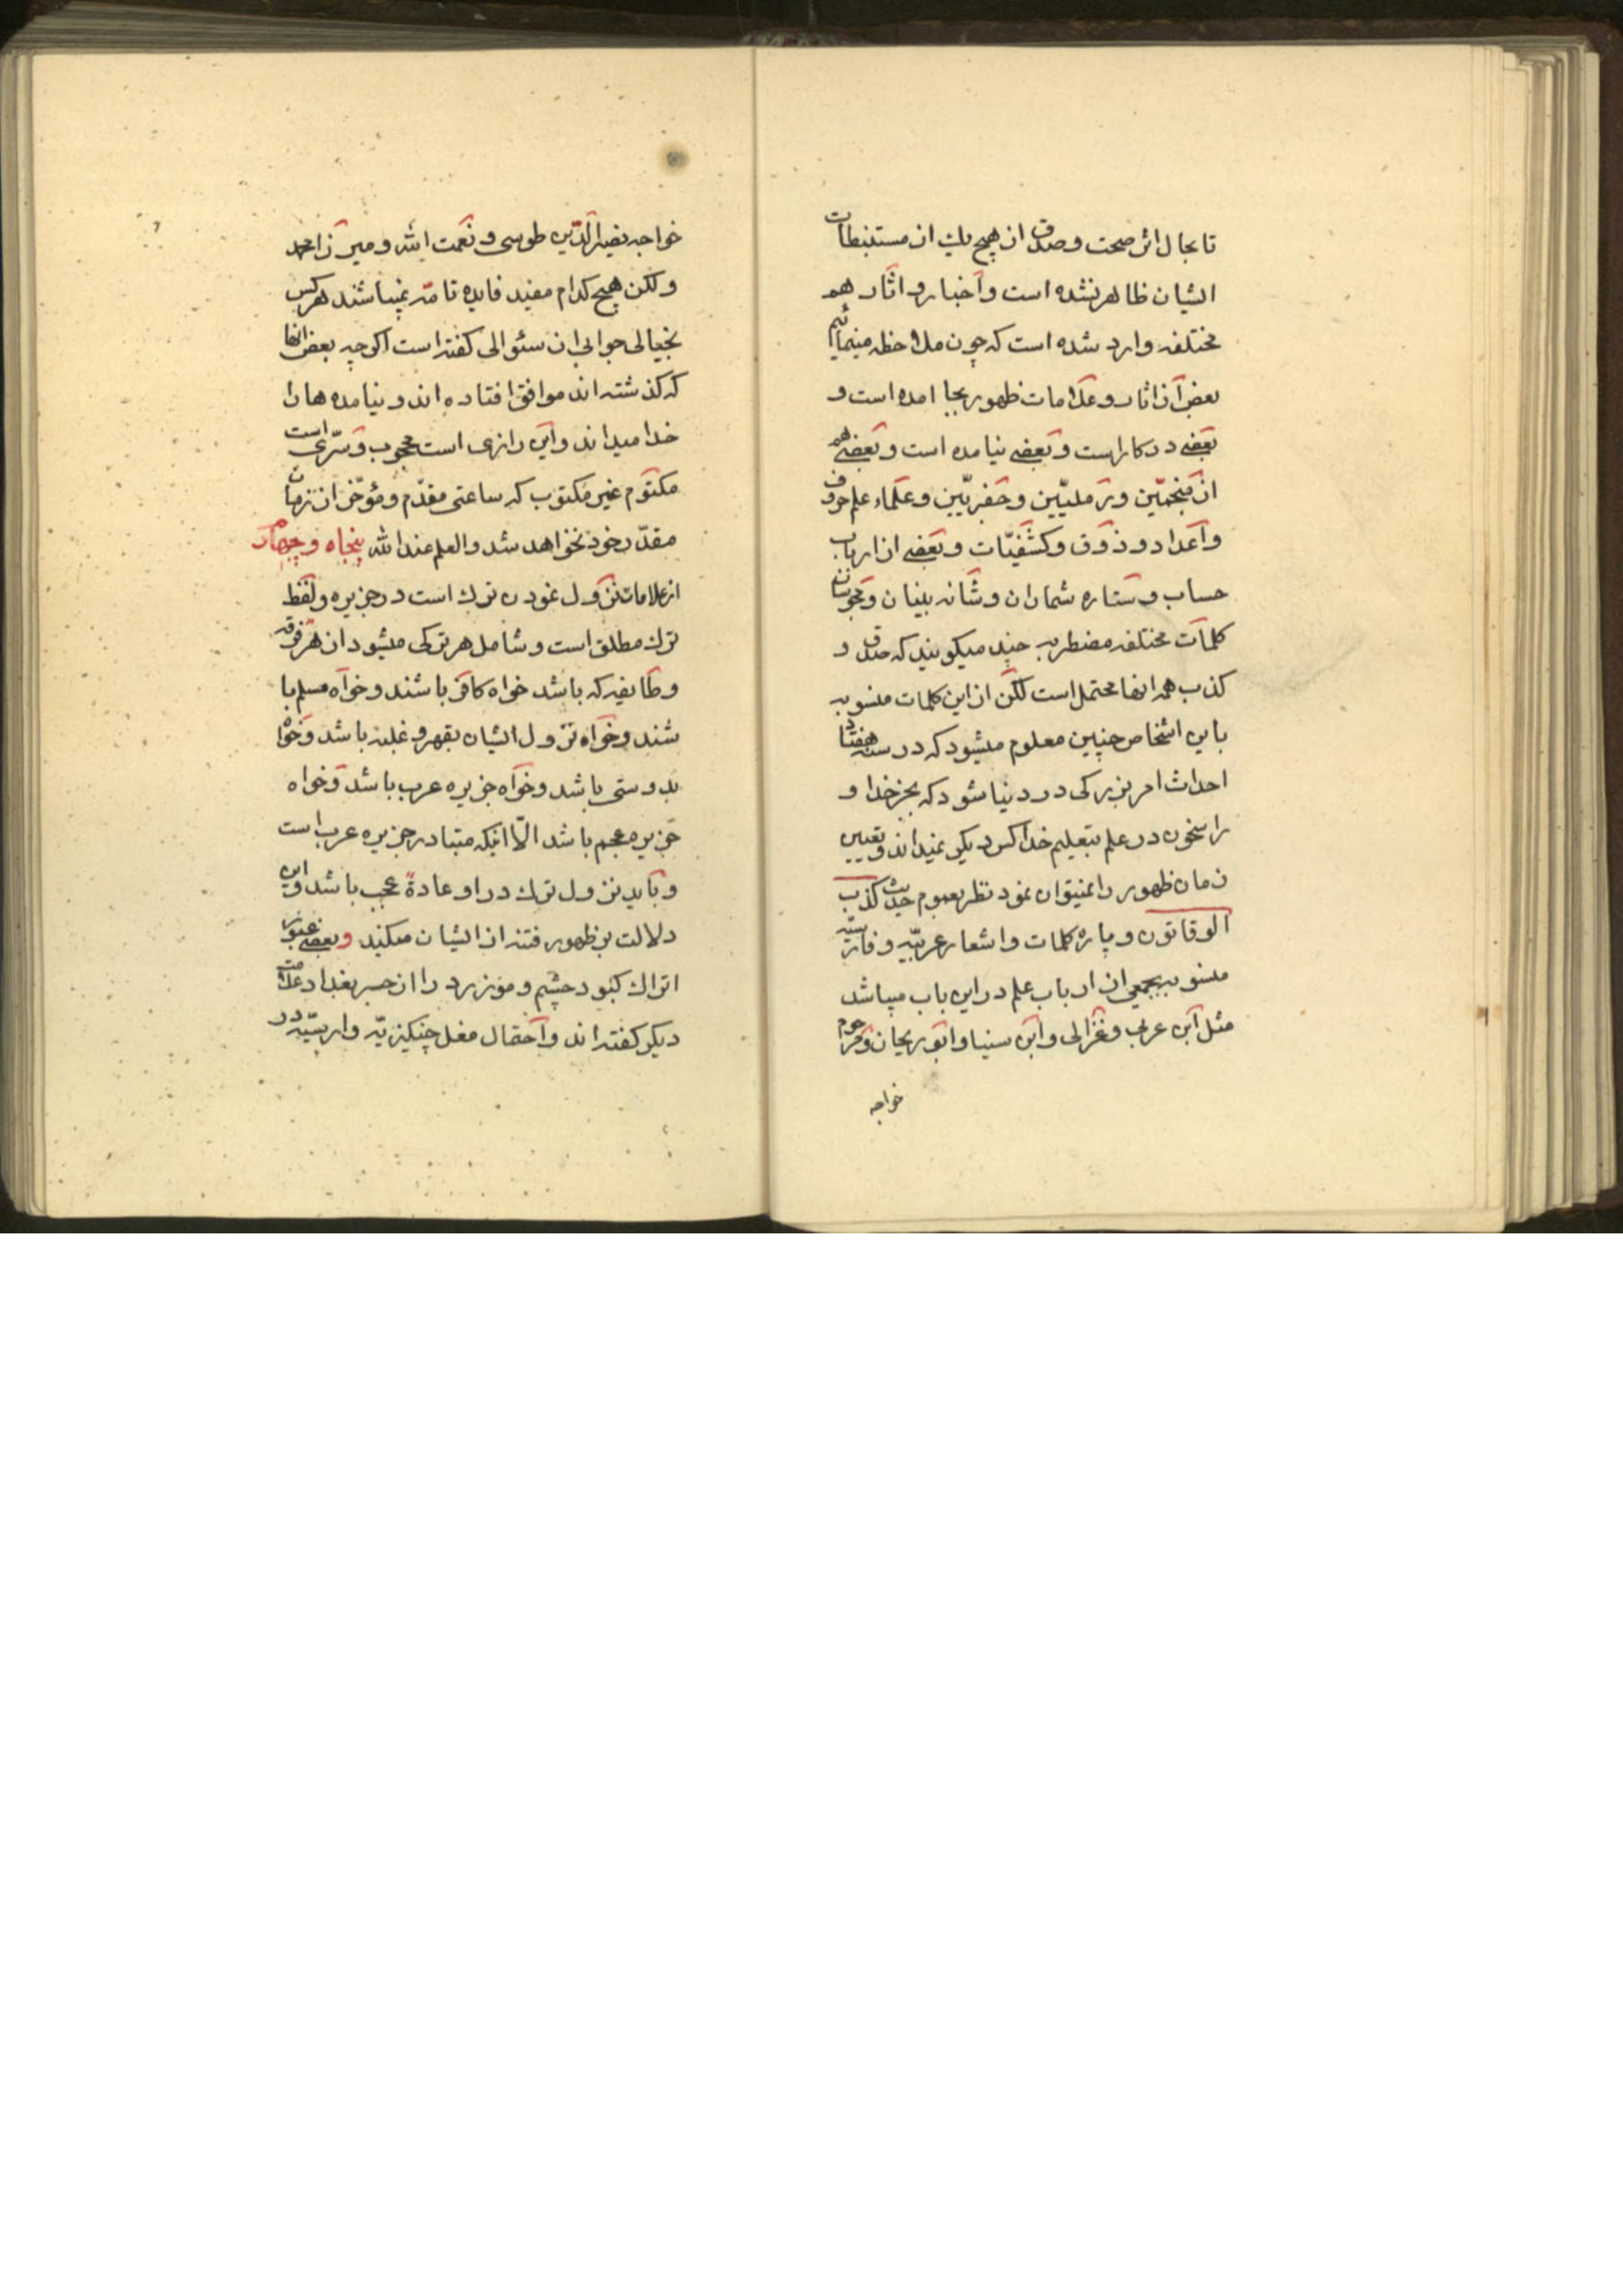 تا بحال اثر صحت و صدق از هیچ یك از مستنبطات
ایشان ظاهر نشده است و اخبار و اثار هم
مختلفه وارد شده است که چون ملاحظه مینمائیم
بعض از اثار و علامات ظهور بجا امده است و
بعضی در کار است و بعضی نیامده است و بعضی هم
از منجمّین و رملیّین و جفریّین و علماء علم حروف
و اعداد و ذوق و کشفیّات و بعضی از ارباب
حساب و ستاره شماران و شانه بینان و مجوسان
کلمات مختلفه مضطربه چند میکویند که صدق و
کذب همه انها محتمل است لکن از این کلمات منسوبه
باین اشخاص چنین معلوم میشود که در سنه هفتاد
احداث امر بزرکی در دنیا شود که بجز خدا و
راسخون در علم بتعلیم خدا کس دیکر نمیداند و تعیین
زمان ظهور را نمیتوان نمود نظر بعموم حدیث کذب
الوقاتون و پاره کلمات و اشعار عربیّه و فارسیّه
منسوبه بجمعی از ارباب علم در این باب میباشد
مثل ابن عربی و غزالی و ابن سینا و ابو ریحان و مرحوم
خواجه
خواجه نصیر الدّین طوسی و نعمت الله و میرزا محمد
و لکن هیچ کدام مفید فایده تامّه نمیباشند هر کس
بخیالی جوابی از سئوالی کفته است اکرچه بعض انها
که کذشته اند موافق افتاده اند و نیامده ها را
خدا میداند و این رازی است محجوب و سرّی است
مکتوم غیر مکتوب که ساعتی مقدّم و مؤخّر از زمان
مقدّر خود نخواهد شد والعلم عند الله پنجاه و چهارم
از علامات نزول نمودن ترك است در جزیره و لفظ
ترك مطلق است و شامل هر ترکی میشود از هر فرقه
و طایفه که باشد خواه کافر باشند و خواه مسلم با
شند و خواه نزول ایشان بقهر و غلبه باشد و خواه
بدوستی باشد و خواه جزیره عرب باشد و خواه
جزیره عجم باشد الّا اینکه متبادر جزیره عرب است
و باید نزول ترك در او عادةً عجب باشد و این
دلالت بر ظهور فتنه از ایشان میکند و بعضی عبور
اتراك کبود چشم و موزرد را از جسر بغداد علامت
دیکر کفته اند و احتمال مغل چنکیزیّه و ارسیّه در